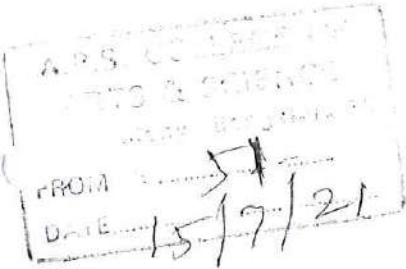 A.P.S. COLLEGE OF
ARTS & SCIENCE
FROM 51
DATE 15/7/21